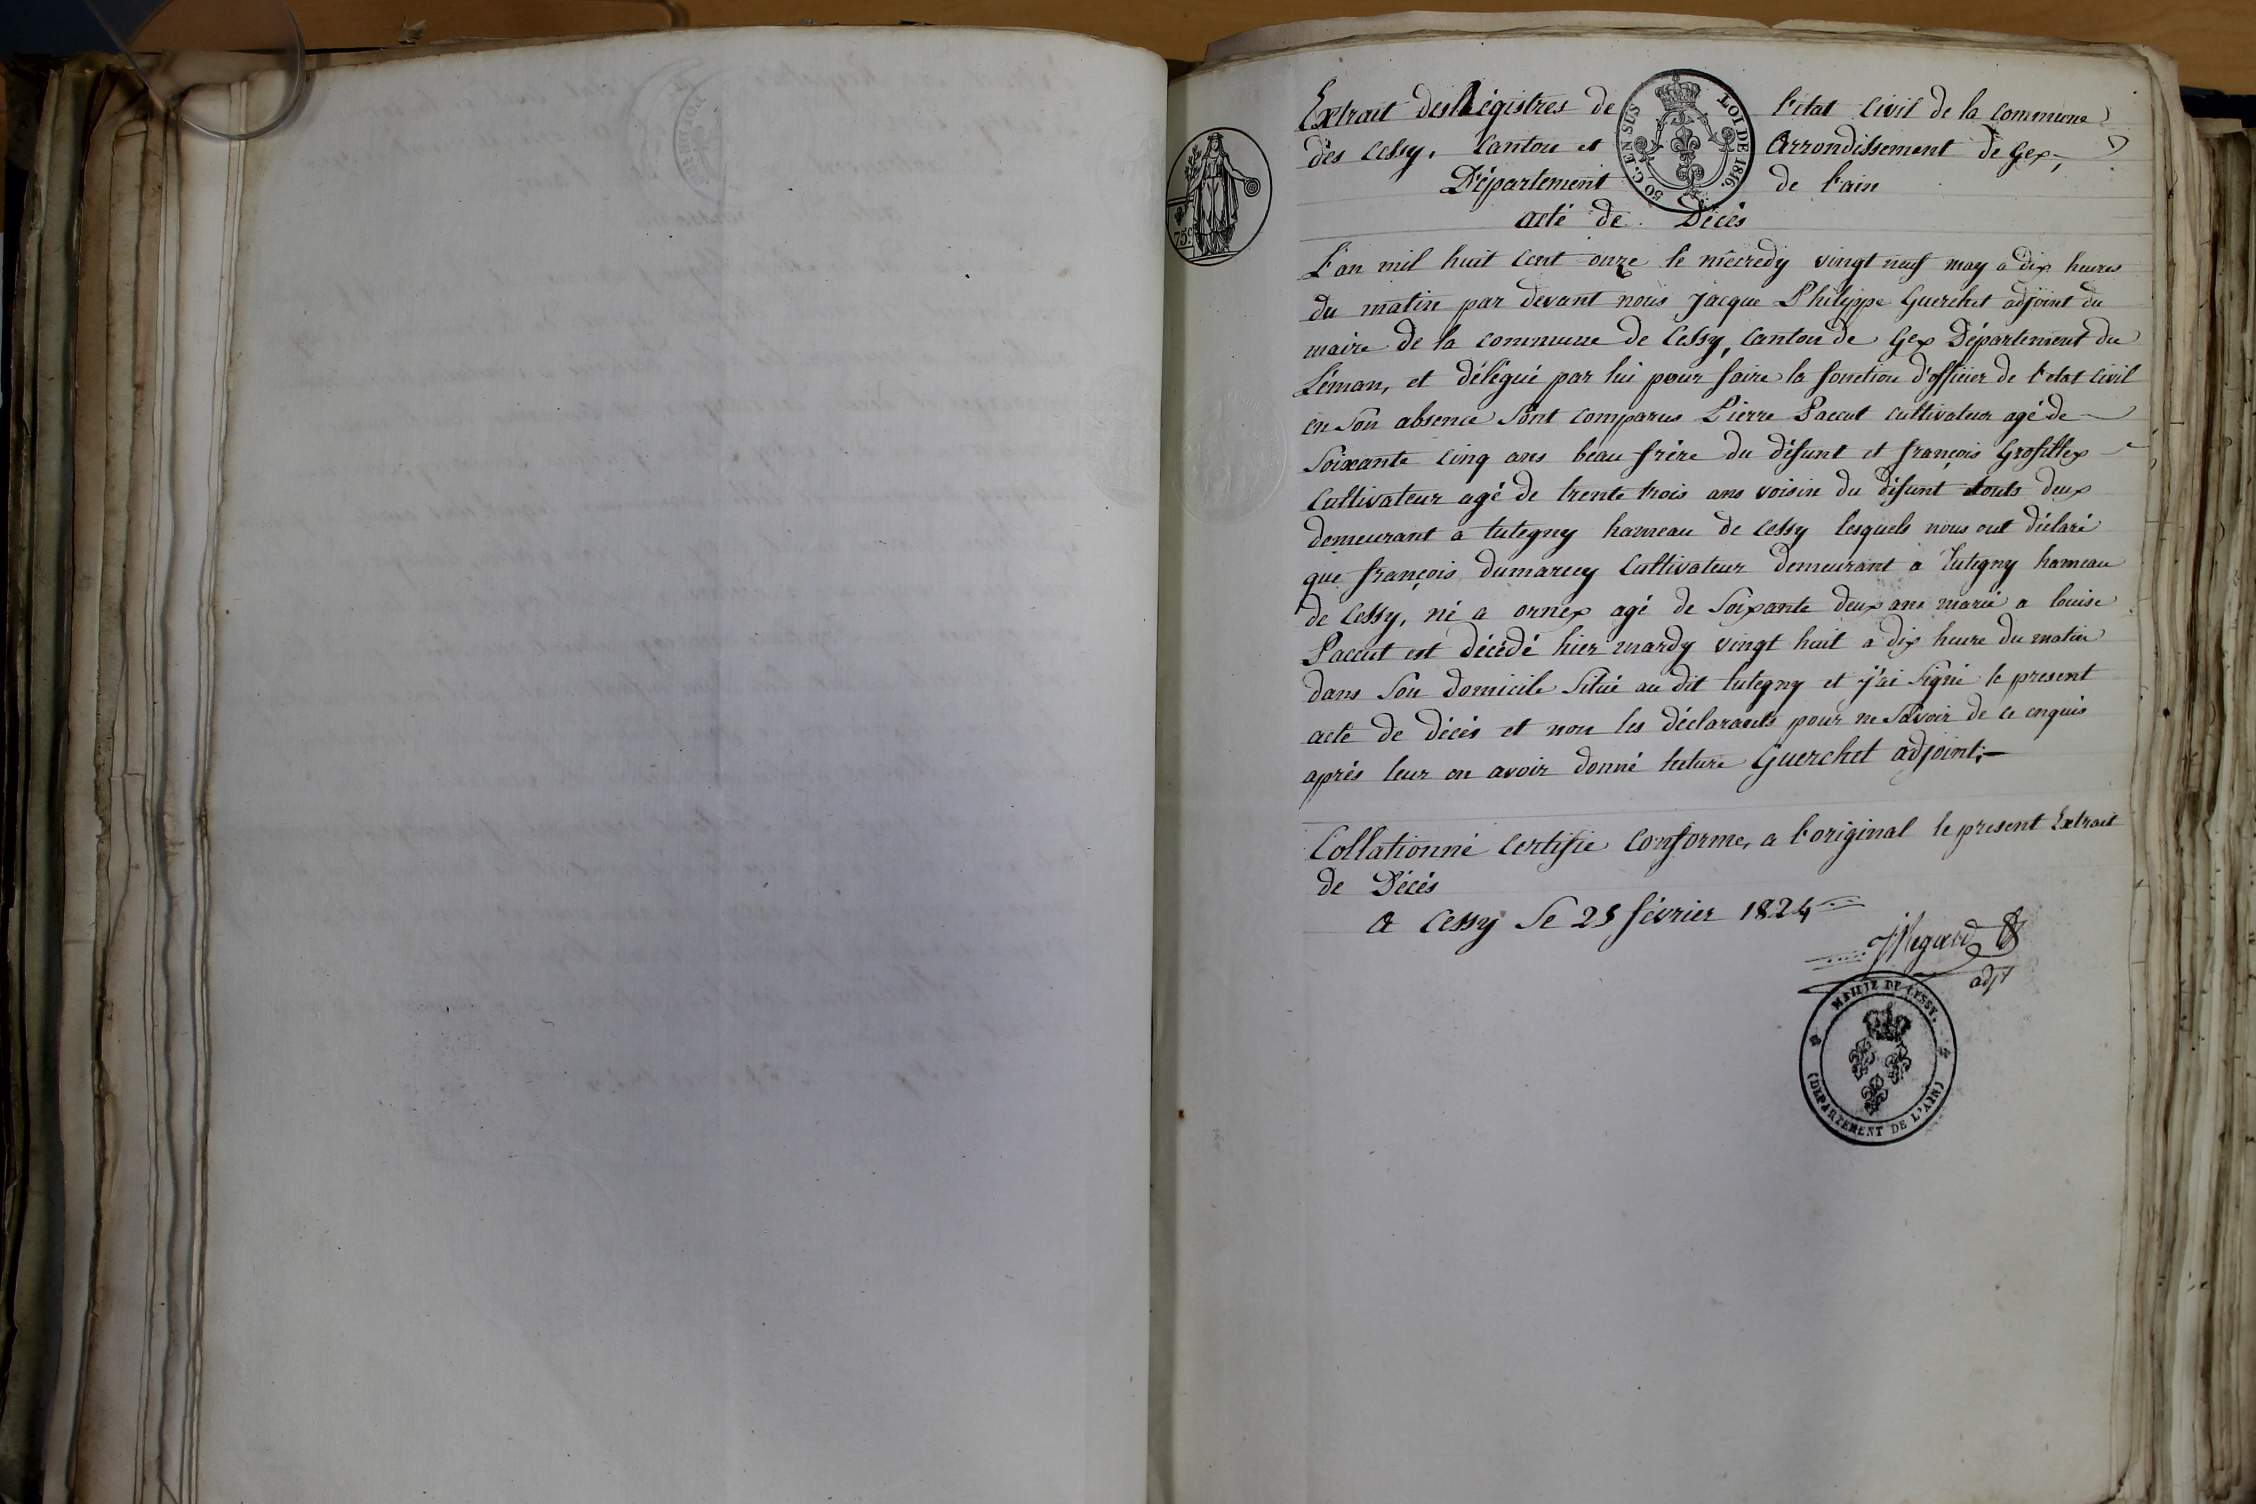 Extrait des Régistres de l'état Civil de la commune
dès Cessy, Canton et Arrondissement de Gex,
Département de l'ain
acte de Décès
50 C. EN SUS LOI DE 1816
75 c.
L'an mil huit cent onze le mécredy vingt neuf may a dix heures
du matin par devant nous jacque Philippe Guerchet adjoint du
maire de la commune de Cessy, Canton de Gex Département du
Léman, et délégué par lui pour faire la fonction d'officier de l'etat Civil
en son absence sont comparus Pierre Paccut cultivateur agé de
soixante cinq ans beau frère du défunt et françois Grosfillex
Cultivateur agé de trente trois ans voisin du défunt touts deux
demeurant a tutegny hameau de cessy lesquels nous ont déclaré
que françois dumarcey Cultivateur demeurant a tutegny hameau
de Cessy, né a ornex agé de soixante deux ans marié a louise
Paccut est décédé hier mardy vingt huit a dix heure du matin
dans son domicile situé au dit tutegny et j'ai signé le present
acte de décés et non les déclarants pour ne savoir de ce enquis
aprés leur en avoir donné lecture Guerchet adjoint;
Collationné certifie Conforme, a l'original le present Extrait
de Décés
a Cessy le 25 février 1824
adjt
MAIRIE DE CESSY.
(DEPARTEMENT DE L'AIN)